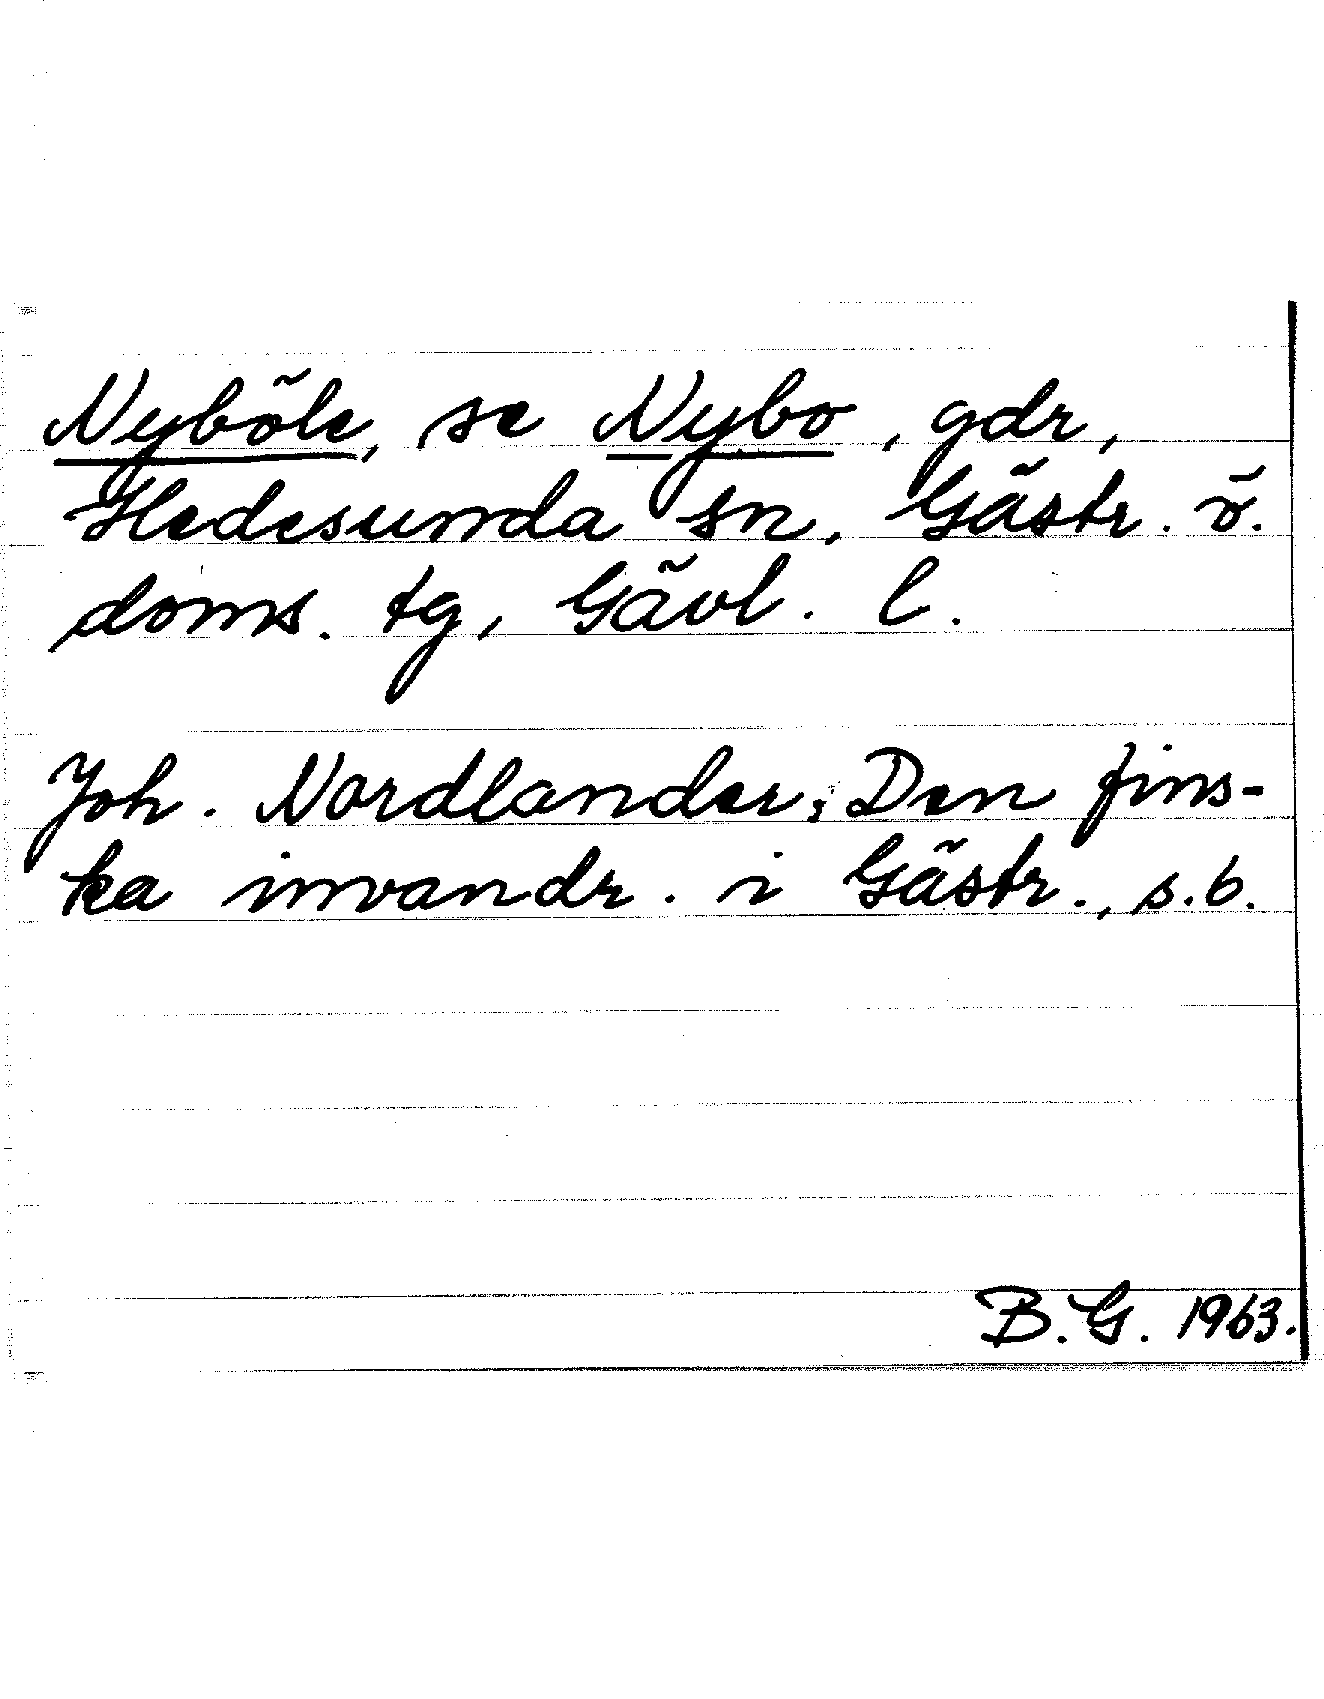 Nyböle, se Nybo, gdr,
Hedesunda sn, Gästr. ö.
doms. tg, Gävl. l.
Joh. Nordlander; Den fins-
ka invandr. i Gästr., s. 6.
B.G. 1963.